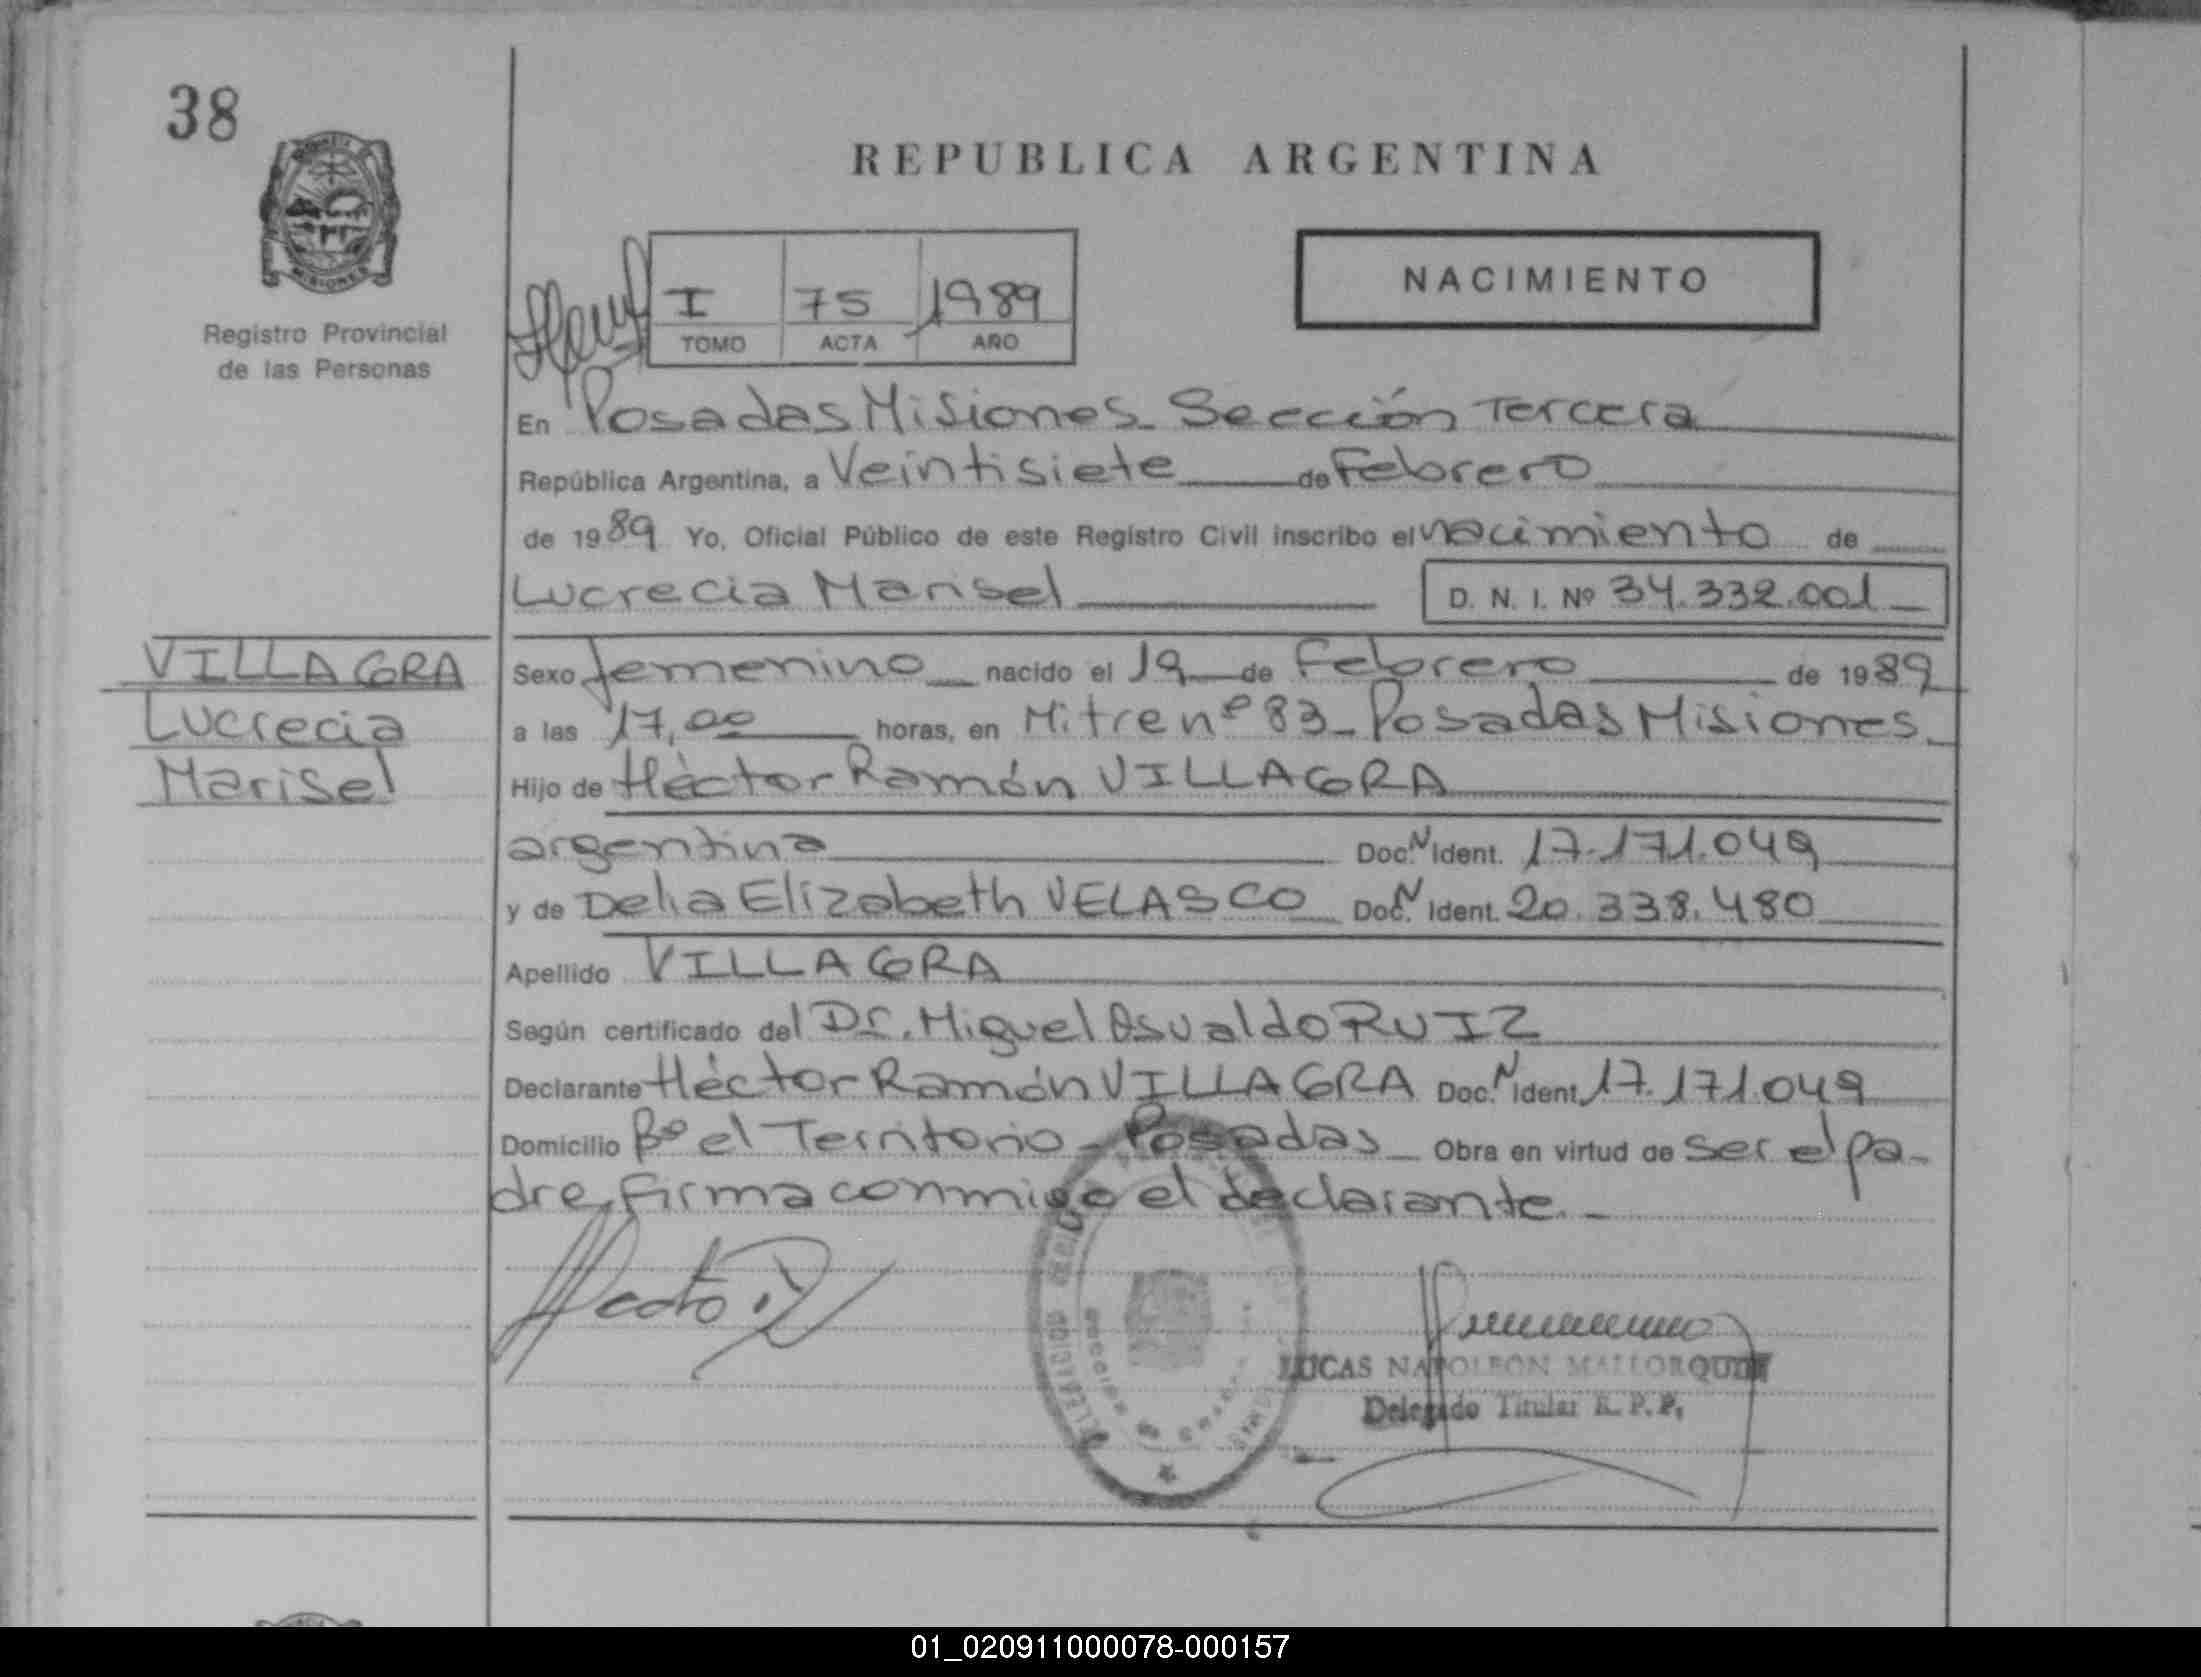 38
REPUBLICA ARGENTINA
MISIONES
Registro Provincial
de las Personas
I 75 1989
TOMO ACTA AÑO
NACIMIENTO
En Posadas Misiones Sección Tercera
República Argentina, a Veintisiete de Febrero
de 1989 Yo, Oficial Público de este Registro Civil inscribo el nacimiento de
Lucrecia Marisel D. N. I. Nº 34.332.001
VILLAGRA
Lucrecia
Marisel
Sexo femenino nacido el 19 de Febrero de 1989
a las 17,00 horas, en Mitre nº 83 - Posadas Misiones
Hijo de Héctor Ramón VILLAGRA
argentina Doc. N Ident. 17.171.049
y de Delia Elizabeth VELASCO Doc. N Ident. 20.338.480
Apellido VILLAGRA
Según certificado del Dr. Miguel Osvaldo RUIZ
Declarante Héctor Ramón VILLAGRA Doc. N Ident. 17.171.049
Domicilio Bº el Territorio - Posadas Obra en virtud de ser el pa-
dre, firma conmigo el declarante. -
LUCAS NAPOLEON MALLORQUIN
Delegado Titular R. P. P.
01_020911000078-000157